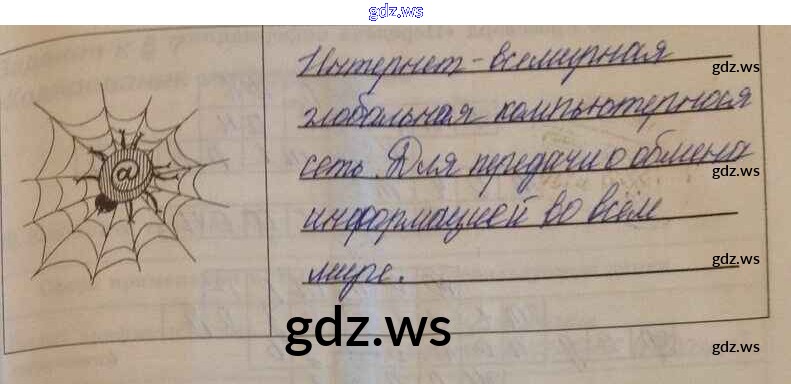 gdz.ws
Интернет - всемирная
gdz.ws
глобальная компьютерноая
сеть. Для передачи о обмена
gdz.ws
@
информацией во всём
gdz.ws
мире.
gdz.ws
gdz.ws